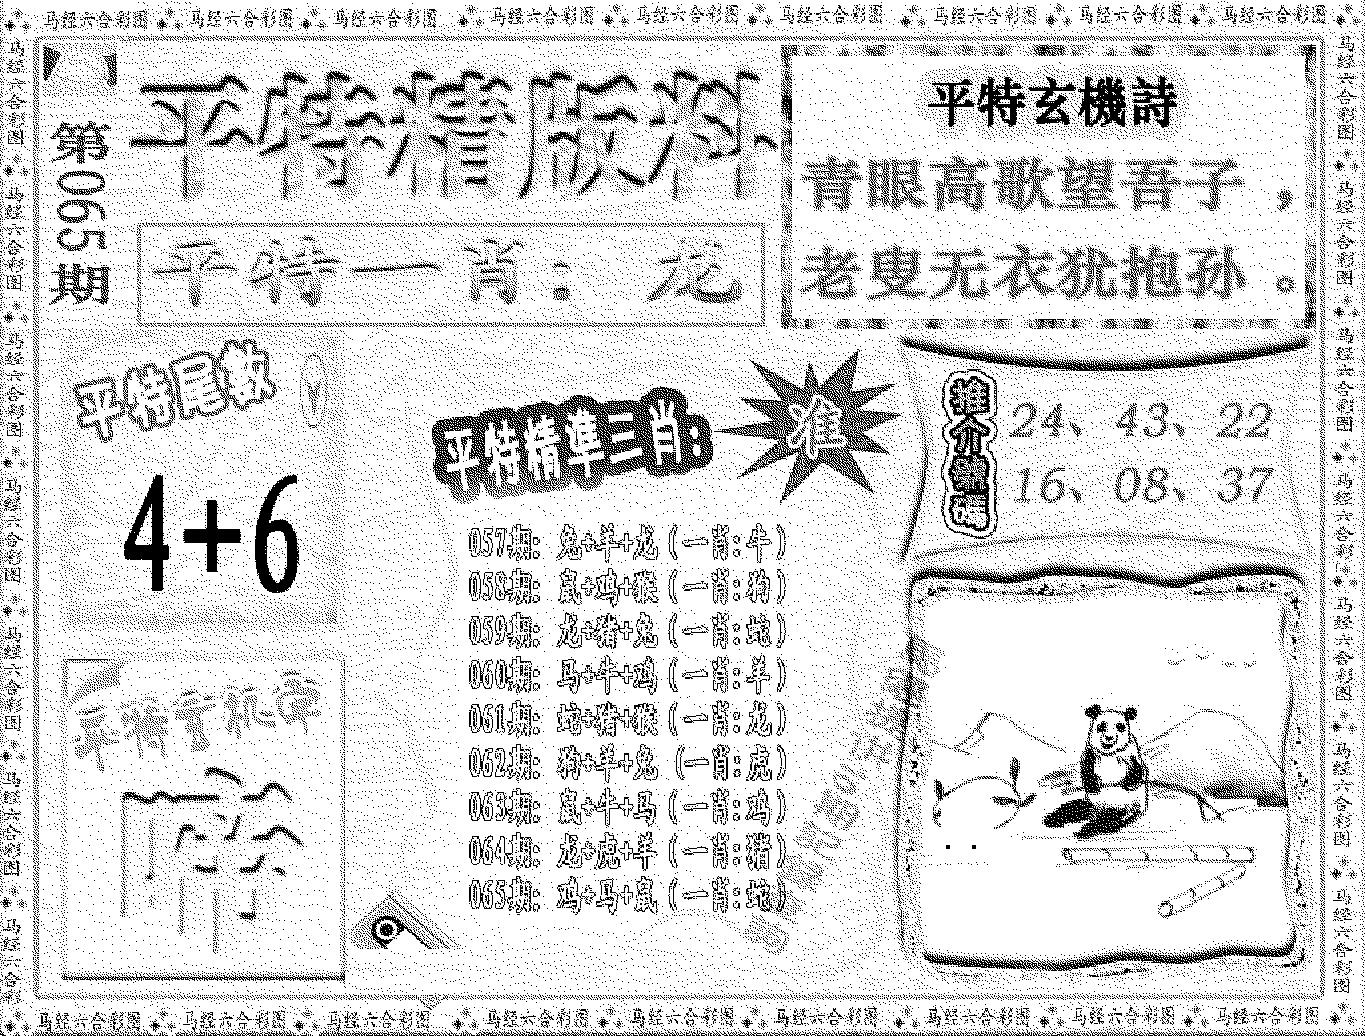 马经六合彩图 马经六合彩图 马经六合彩图 马经六合彩图 马经六合彩图 马经六合彩图 马经六合彩图 马经六合彩图 马经六合彩图
第065期
平特精版料
平特一肖：龙
平特玄機詩
青眼高歌望吾子，
老叟无衣犹抱孙。
平特尾数
4+6
平特精準三肖：
准
057期：兔+羊+龙（一肖：牛）
058期：鼠+鸡+猴（一肖：狗）
059期：龙+猪+兔（一肖：蛇）
060期：马+牛+鸡（一肖：羊）
061期：蛇+猪+猴（一肖：龙）
062期：狗+羊+兔（一肖：虎）
063期：鼠+牛+马（一肖：鸡）
064期：龙+虎+羊（一肖：猪）
065期：鸡+马+鼠（一肖：蛇）
24、43、22
16、08、37
平特玄机字
马经六合彩图 马经六合彩图 马经六合彩图 马经六合彩图 马经六合彩图 马经六合彩图 马经六合彩图 马经六合彩图 马经六合彩图